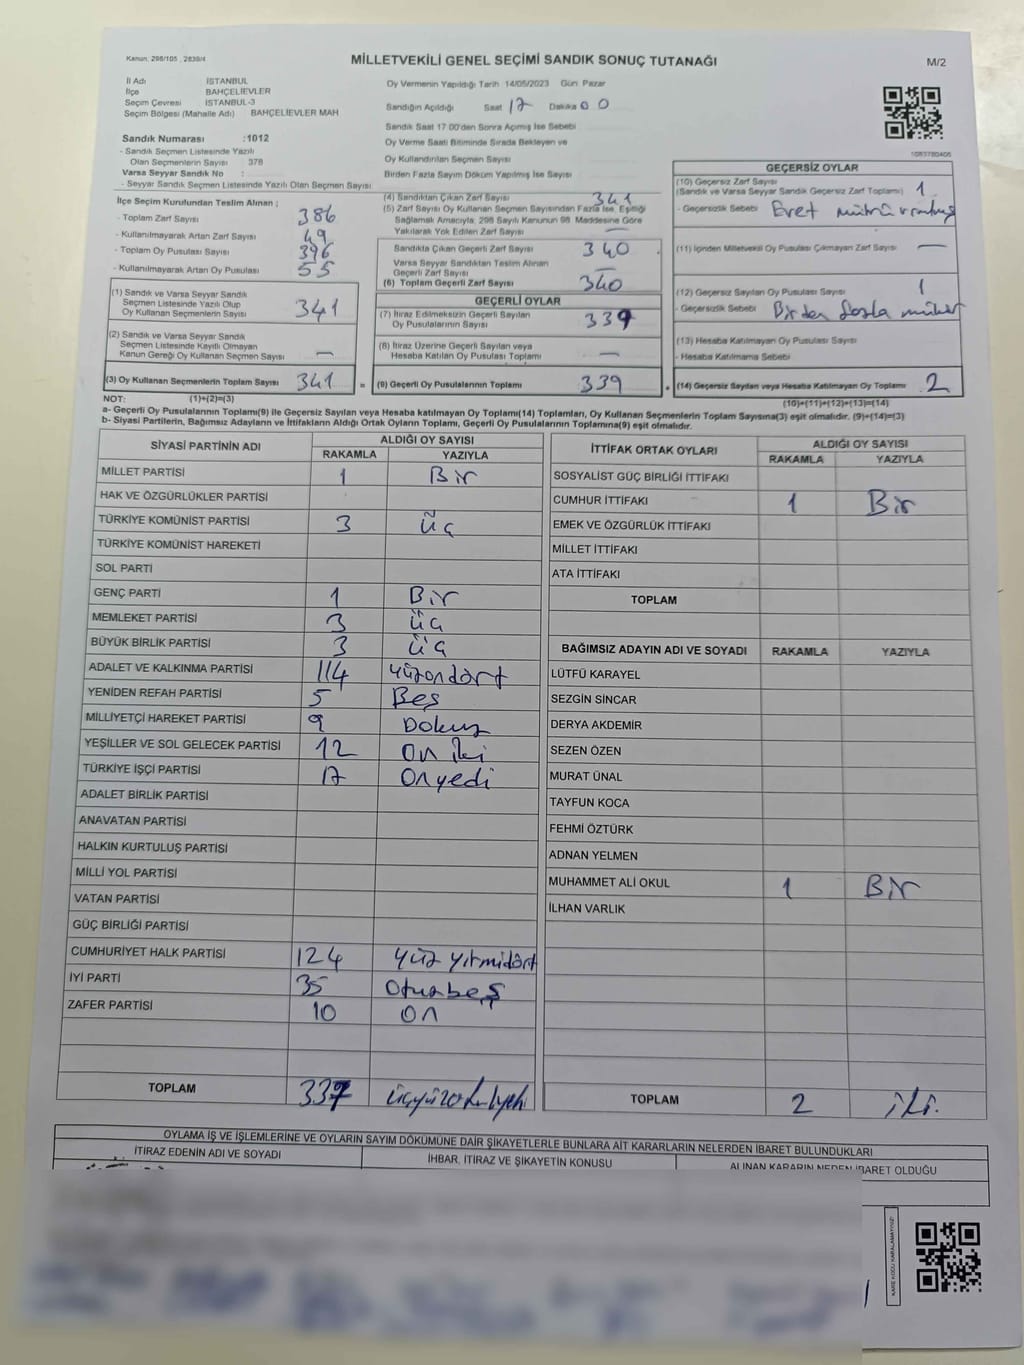 Kanun: 298/105 , 2839/4
MİLLETVEKİLİ GENEL SEÇİMİ SANDIK SONUÇ TUTANAĞI
M/2
İl Adı İSTANBUL
İlçe BAHÇELİEVLER
Seçim Çevresi İSTANBUL-3
Seçim Bölgesi (Mahalle Adı) BAHÇELİEVLER MAH
Oy Vermenin Yapıldığı Tarih 14/05/2023 Gün Pazar
Sandığın Açıldığı Saat 17 Dakika 00
Sandık Saat 17.00'den Sonra Açılmış İse Sebebi
Oy Verme Saati Bitiminde Sırada Bekleyen ve
Oy Kullandırılan Seçmen Sayısı
Birden Fazla Sayım Döküm Yapılmış İse Sayısı
1083780406
Sandık Numarası :1012
- Sandık Seçmen Listesinde Yazılı
Olan Seçmenlerin Sayısı : 378
Varsa Seyyar Sandık No :
- Seyyar Sandık Seçmen Listesinde Yazılı Olan Seçmen Sayısı
İlçe Seçim Kurulundan Teslim Alınan ;
- Toplam Zarf Sayısı 386
- Kullanılmayarak Artan Zarf Sayısı 49
- Toplam Oy Pusulası Sayısı 396
- Kullanılmayarak Artan Oy Pusulası 55
(1) Sandık ve Varsa Seyyar Sandık
Seçmen Listesinde Yazılı Olup
Oy Kullanan Seçmenlerin Sayısı 341
(2) Sandık ve Varsa Seyyar Sandık
Seçmen Listesinde Kayıtlı Olmayan
Kanun Gereği Oy Kullanan Seçmen Sayısı —
(3) Oy Kullanan Seçmenlerin Toplam Sayısı 341 =
(4) Sandıktan Çıkan Zarf Sayısı 341
(5) Zarf Sayısı Oy Kullanan Seçmen Sayısından Fazla İse, Eşitliği
Sağlamak Amacıyla, 298 Sayılı Kanunun 98. Maddesine Göre
Yakılarak Yok Edilen Zarf Sayısı
Sandıkta Çıkan Geçerli Zarf Sayısı 340
Varsa Seyyar Sandıktan Teslim Alınan
Geçerli Zarf Sayısı —
(6) Toplam Geçerli Zarf Sayısı 340
GEÇERLİ OYLAR
(7) İtiraz Edilmeksizin Geçerli Sayılan
Oy Pusulalarının Sayısı 339
(8) İtiraz Üzerine Geçerli Sayılan veya
Hesaba Katılan Oy Pusulası Toplamı —
(9) Geçerli Oy Pusulalarının Toplamı 339 +
GEÇERSİZ OYLAR
(10) Geçersiz Zarf Sayısı
(Sandık ve Varsa Seyyar Sandık Geçersiz Zarf Toplamı) 1
- Geçersizlik Sebebi Evet mührü
(11) İçinden Milletvekili Oy Pusulası Çıkmayan Zarf Sayısı —
(12) Geçersiz Sayılan Oy Pusulası Sayısı 1
- Geçersizlik Sebebi Birden fazla mühür
(13) Hesaba Katılmayan Oy Pusulası Sayısı
- Hesaba Katılmama Sebebi
(14) Geçersiz Sayılan veya Hesaba Katılmayan Oy Toplamı 2
NOT: (1)+(2)=(3)
(10)+(11)+(12)+(13)=(14)
a- Geçerli Oy Pusulalarının Toplamı(9) ile Geçersiz Sayılan veya Hesaba katılmayan Oy Toplamı(14) Toplamları, Oy Kullanan Seçmenlerin Toplam Sayısına(3) eşit olmalıdır. (9)+(14)=(3)
b- Siyasi Partilerin, Bağımsız Adayların ve İttifakların Aldığı Ortak Oyların Toplamı, Geçerli Oy Pusulalarının Toplamına(9) eşit olmalıdır.
SİYASİ PARTİNİN ADI ALDIĞI OY SAYISI
RAKAMLA YAZIYLA
MİLLET PARTİSİ 1 Bir
HAK VE ÖZGÜRLÜKLER PARTİSİ
TÜRKİYE KOMÜNİST PARTİSİ 3 üç
TÜRKİYE KOMÜNİST HAREKETİ
SOL PARTİ
GENÇ PARTİ 1 Bir
MEMLEKET PARTİSİ 3 üç
BÜYÜK BİRLİK PARTİSİ 3 üç
ADALET VE KALKINMA PARTİSİ 114 yüzondört
YENİDEN REFAH PARTİSİ 5 Beş
MİLLİYETÇİ HAREKET PARTİSİ 9 Dokuz
YEŞİLLER VE SOL GELECEK PARTİSİ 12 On iki
TÜRKİYE İŞÇİ PARTİSİ 17 Onyedi
ADALET BİRLİK PARTİSİ
ANAVATAN PARTİSİ
HALKIN KURTULUŞ PARTİSİ
MİLLİ YOL PARTİSİ
VATAN PARTİSİ
GÜÇ BİRLİĞİ PARTİSİ
CUMHURİYET HALK PARTİSİ 124 yüz yirmidört
İYİ PARTİ 35 Otuzbeş
ZAFER PARTİSİ 10 On
TOPLAM 337
İTTİFAK ORTAK OYLARI ALDIĞI OY SAYISI
RAKAMLA YAZIYLA
SOSYALİST GÜÇ BİRLİĞİ İTTİFAKI
CUMHUR İTTİFAKI 1 Bir
EMEK VE ÖZGÜRLÜK İTTİFAKI
MİLLET İTTİFAKI
ATA İTTİFAKI
TOPLAM
BAĞIMSIZ ADAYIN ADI VE SOYADI RAKAMLA YAZIYLA
LÜTFÜ KARAYEL
SEZGİN SİNCAR
DERYA AKDEMİR
SEZEN ÖZEN
MURAT ÜNAL
TAYFUN KOCA
FEHMİ ÖZTÜRK
ADNAN YELMEN
MUHAMMET ALİ OKUL 1 Bir
İLHAN VARLIK
TOPLAM 2 iki.
OYLAMA İŞ VE İŞLEMLERİNE VE OYLARIN SAYIM DÖKÜMÜNE DAİR ŞİKAYETLERLE BUNLARA AİT KARARLARIN NELERDEN İBARET BULUNDUKLARI
İTİRAZ EDENİN ADI VE SOYADI İHBAR, İTİRAZ VE ŞİKAYETİN KONUSU ALINAN KARARIN NEDEN İBARET OLDUĞU
KARE KODU KARALAMAYINIZ!